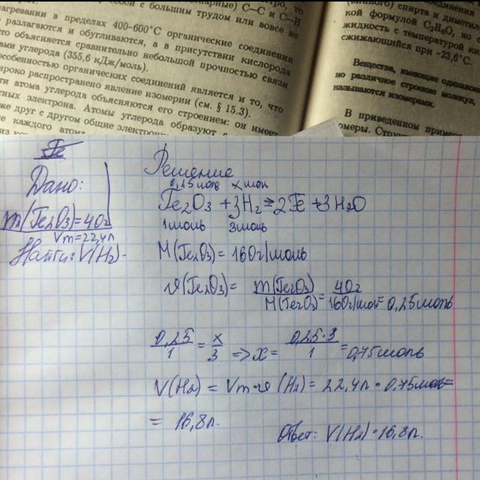 нагревании в пределах 400–600°С органические соединения
разлагаются и обугливаются, а в присутствии кислорода
объясняется сравнительно небольшой прочностью связи
углерода (355,6 кДж/моль).
особенностью органических соединений является и то, что
широко распространено явление изомерии (см. § 15.3).
атома углерода объясняются его строением: он имеет
электрона. Атомы углерода образуют с
друг с другом общие электронные
каждого атома
спирта и
кой формулой C₂H₆O, но с
жидкость с температурой
сжижающийся при –23,6°С.
Вещества, имеющие одинаковый
но различное строение молекул,
называются изомерами.
В приведенном примере
Fe
Дано:
m(Fe₂O₃)=40г
Vm=22,4л
Найти: V(H₂)-
Решение
0,25моль x моль
Fe₂O₃ + 3H₂ = 2Fe + 3H₂O
1моль 3моль
M(Fe₂O₃) = 160г/моль
υ(Fe₂O₃) = m(Fe₂O₃)/M(Fe₂O₃) = 40г/160г/моль = 0,25моль
0,25/1 = x/3 => x = 0,25·3/1 = 0,75моль
V(H₂) = Vm·υ(H₂) = 22,4л · 0,75моль=
= 16,8л.
Ответ: V(H₂)=16,8л.